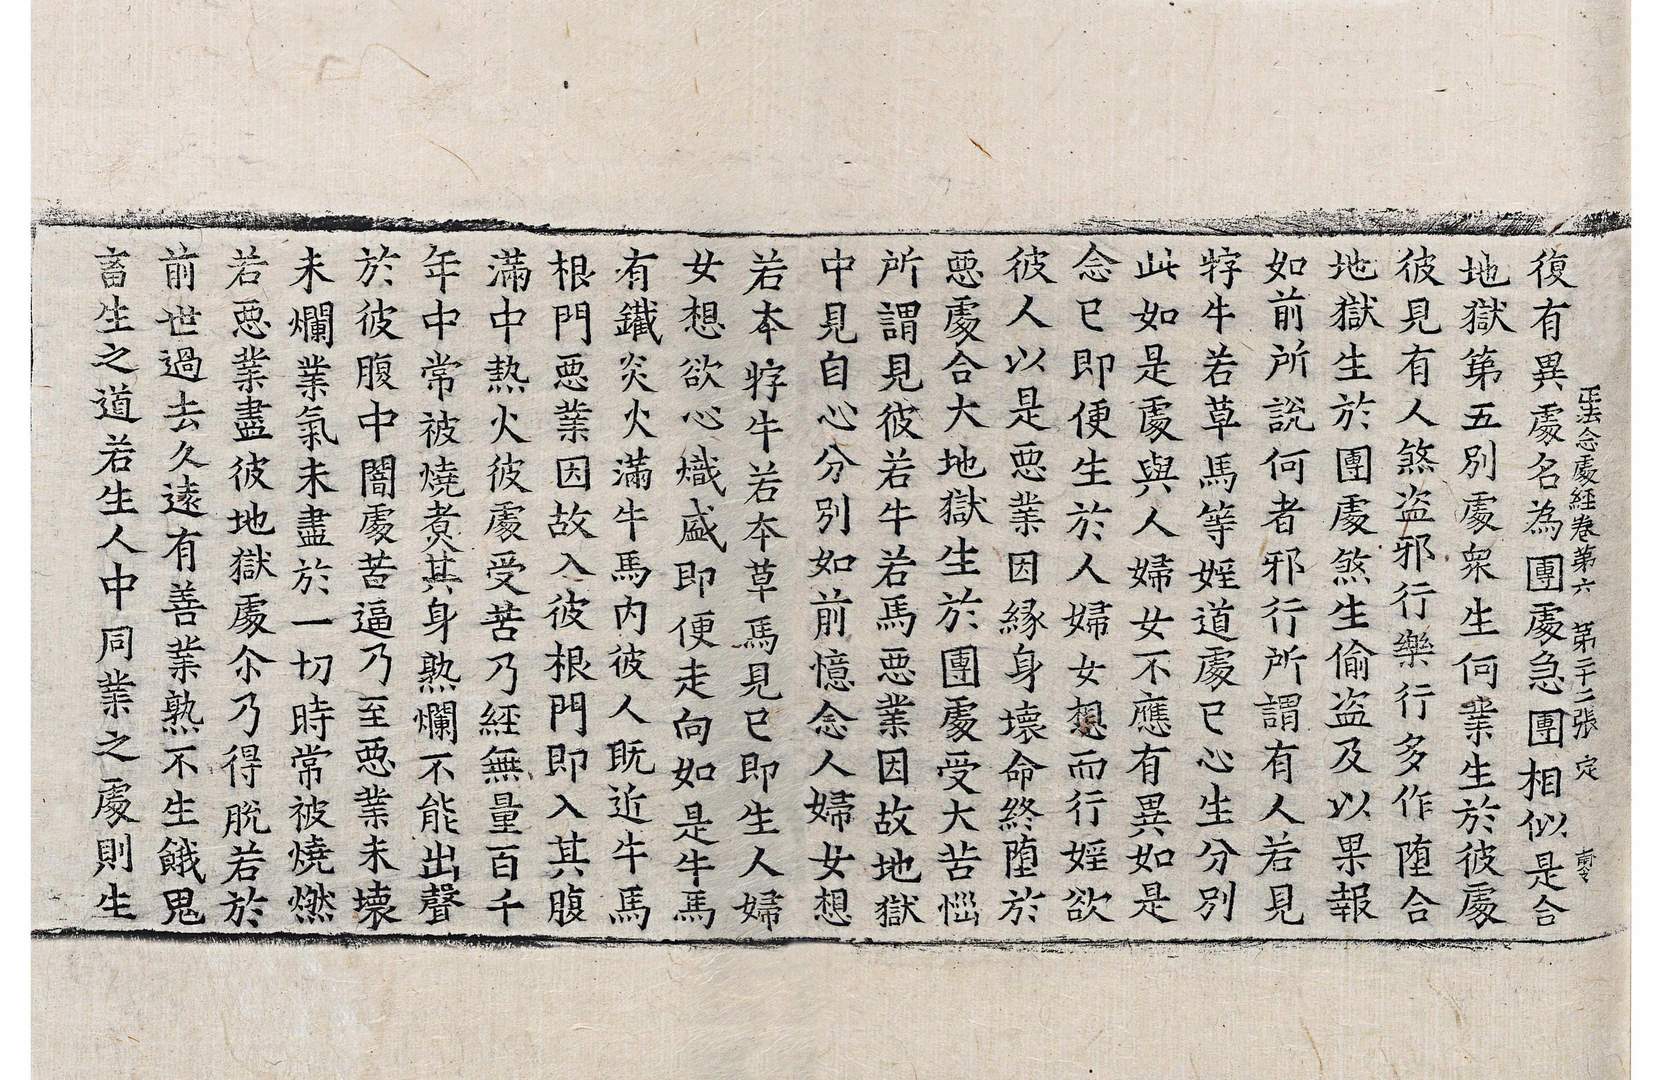 正法念處經卷第六　第二十二張　定
復有異處名為團處急團相似是合
地獄第五別處眾生何業生於彼處
彼見有人煞盜邪行樂行多作墮合
地獄生於團處煞生偷盜及以果報
如前所說何者邪行所謂有人若見
牸牛若草馬等婬道處已心生分別
此如是處與人婦女不應有異如是
念已即便生於人婦女想而行婬欲
彼人以是惡業因緣身壞命終墮於
惡處合大地獄生於團處受大苦惱
所謂見彼若牛若馬惡業因故地獄
中見自心分別如前憶念人婦女想
若本牸牛若本草馬見已即生人婦
女想欲心熾盛即便走向如是牛馬
有鐵炎火滿牛馬內彼人既近牛馬
根門惡業因故入彼根門即入其腹
滿中熱火彼處受苦乃經無量百千
年中常被燒煮其身熟爛不能出聲
於彼腹中闇處苦逼乃至惡業未壞
未爛業氣未盡於一切時常被燒燃
若惡業盡彼地獄處尒乃得脫若於
前世過去久遠有善業熟不生餓鬼
畜生之道若生人中同業之處則生